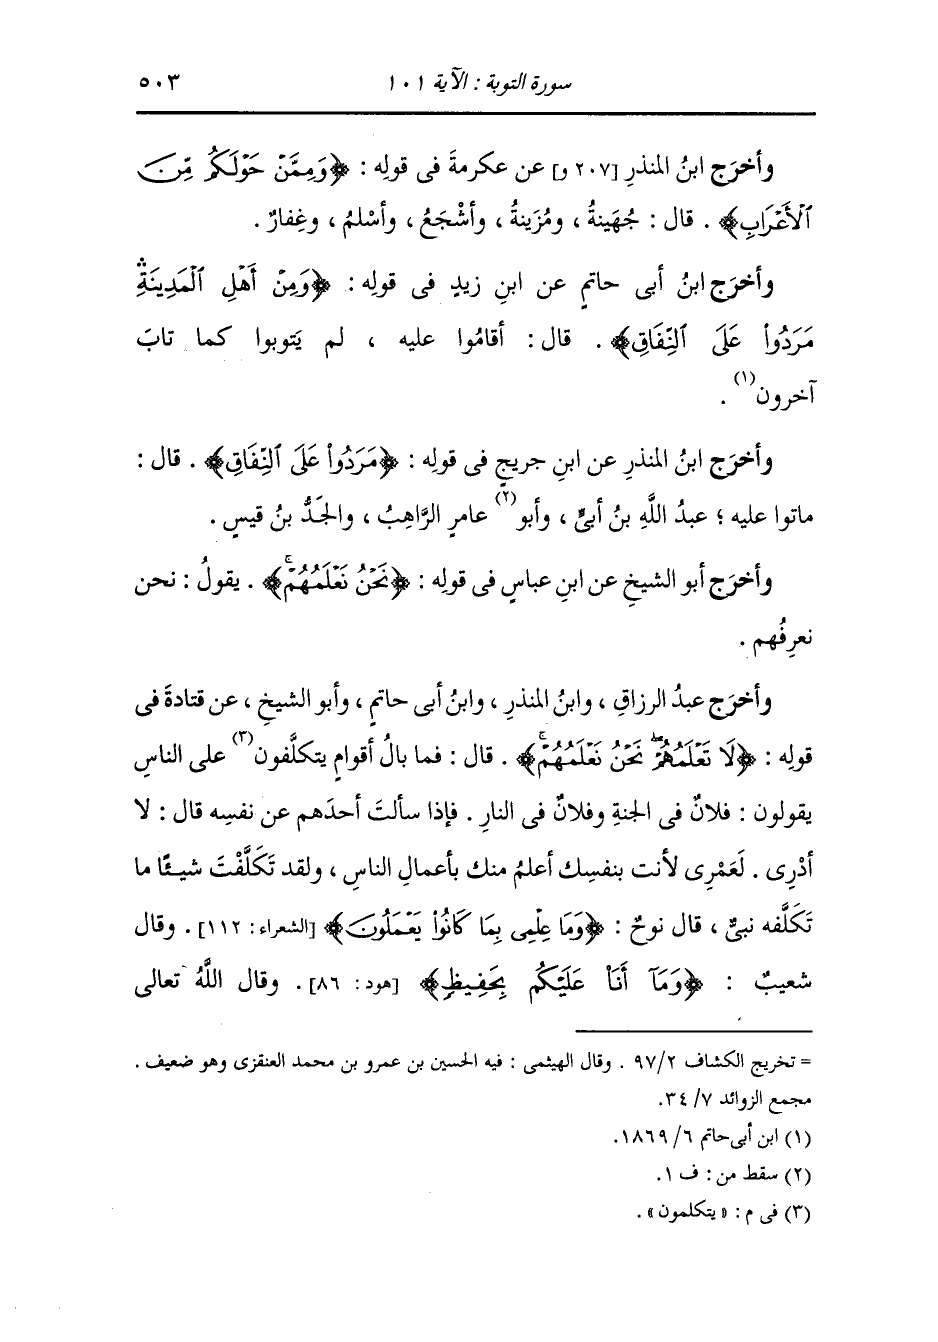 سورة التوبة : الآية ١٠١ ٥٠٣
وأخرَج ابنُ المنذرِ [٢٠٧ و] عن عكرمةَ فى قولِه : ﴿وَمِمَّنْ حَوْلَكُم مِّنَ
ٱلْأَعْرَابِ﴾ . قال : جُهَينةُ ، ومُزَينةُ ، وأشْجَعُ ، وأسْلمُ ، وغِفارٌ .
وأخرَج ابنُ أبى حاتمٍ عن ابنِ زيدٍ فى قولِه : ﴿وَمِنْ أَهْلِ ٱلْمَدِينَةِۛ
مَرَدُوا۟ عَلَى ٱلنِّفَاقِ﴾ . قال : أقامُوا عليه ، لم يَتوبوا كما تابَ
آخرون(١) .
وأخرَج ابنُ المنذرِ عن ابنِ جريجٍ فى قولِه : ﴿مَرَدُوا۟ عَلَى ٱلنِّفَاقِ﴾ . قال :
ماتوا عليه ؛ عبدُ اللَّهِ بنُ أبىٍّ ، وأبو(٢) عامرٍ الرَّاهبُ ، والجَدُّ بنُ قيسٍ .
وأخرَج أبو الشيخِ عن ابنِ عباسٍ فى قولِه : ﴿نَحْنُ نَعْلَمُهُمْۚ﴾ . يقولُ : نحن
نعرِفُهم .
وأخرَج عبدُ الرزاقِ ، وابنُ المنذرِ ، وابنُ أبى حاتمٍ ، وأبو الشيخِ ، عن قتادةَ فى
قولِه : ﴿لَا تَعْلَمُهُمْۖ نَحْنُ نَعْلَمُهُمْۚ﴾ . قال : فما بالُ أقوامٍ يتكلَّفون(٣) على الناسِ
يقولون : فلانٌ فى الجنةِ وفلانٌ فى النارِ . فإذا سألتَ أحدَهم عن نفسِه قال : لا
أدْرِى . لَعَمْرِى لأنت بنفسِك أعلمُ منك بأعمالِ الناسِ ، ولقد تَكَلَّفْتَ شيئًا ما
تَكَلَّفه نبىٌّ ، قال نوحٌ : ﴿وَمَا عِلْمِى بِمَا كَانُوا۟ يَعْمَلُونَ﴾ [الشعراء : ١١٢] . وقال
شعيبٌ : ﴿وَمَآ أَنَا۠ عَلَيْكُم بِحَفِيظٍ﴾ [هود : ٨٦] . وقال اللَّهُ تعالى
= تخريج الكشاف ٢/ ٩٧ . وقال الهيثمى : فيه الحسين بن عمرو بن محمد العنقزى وهو ضعيف .
مجمع الزوائد ٧/ ٣٤.
(١) ابن أبى حاتم ٦/ ١٨٦٩.
(٢) سقط من : ف ١.
(٣) فى م : « يتكلمون » .